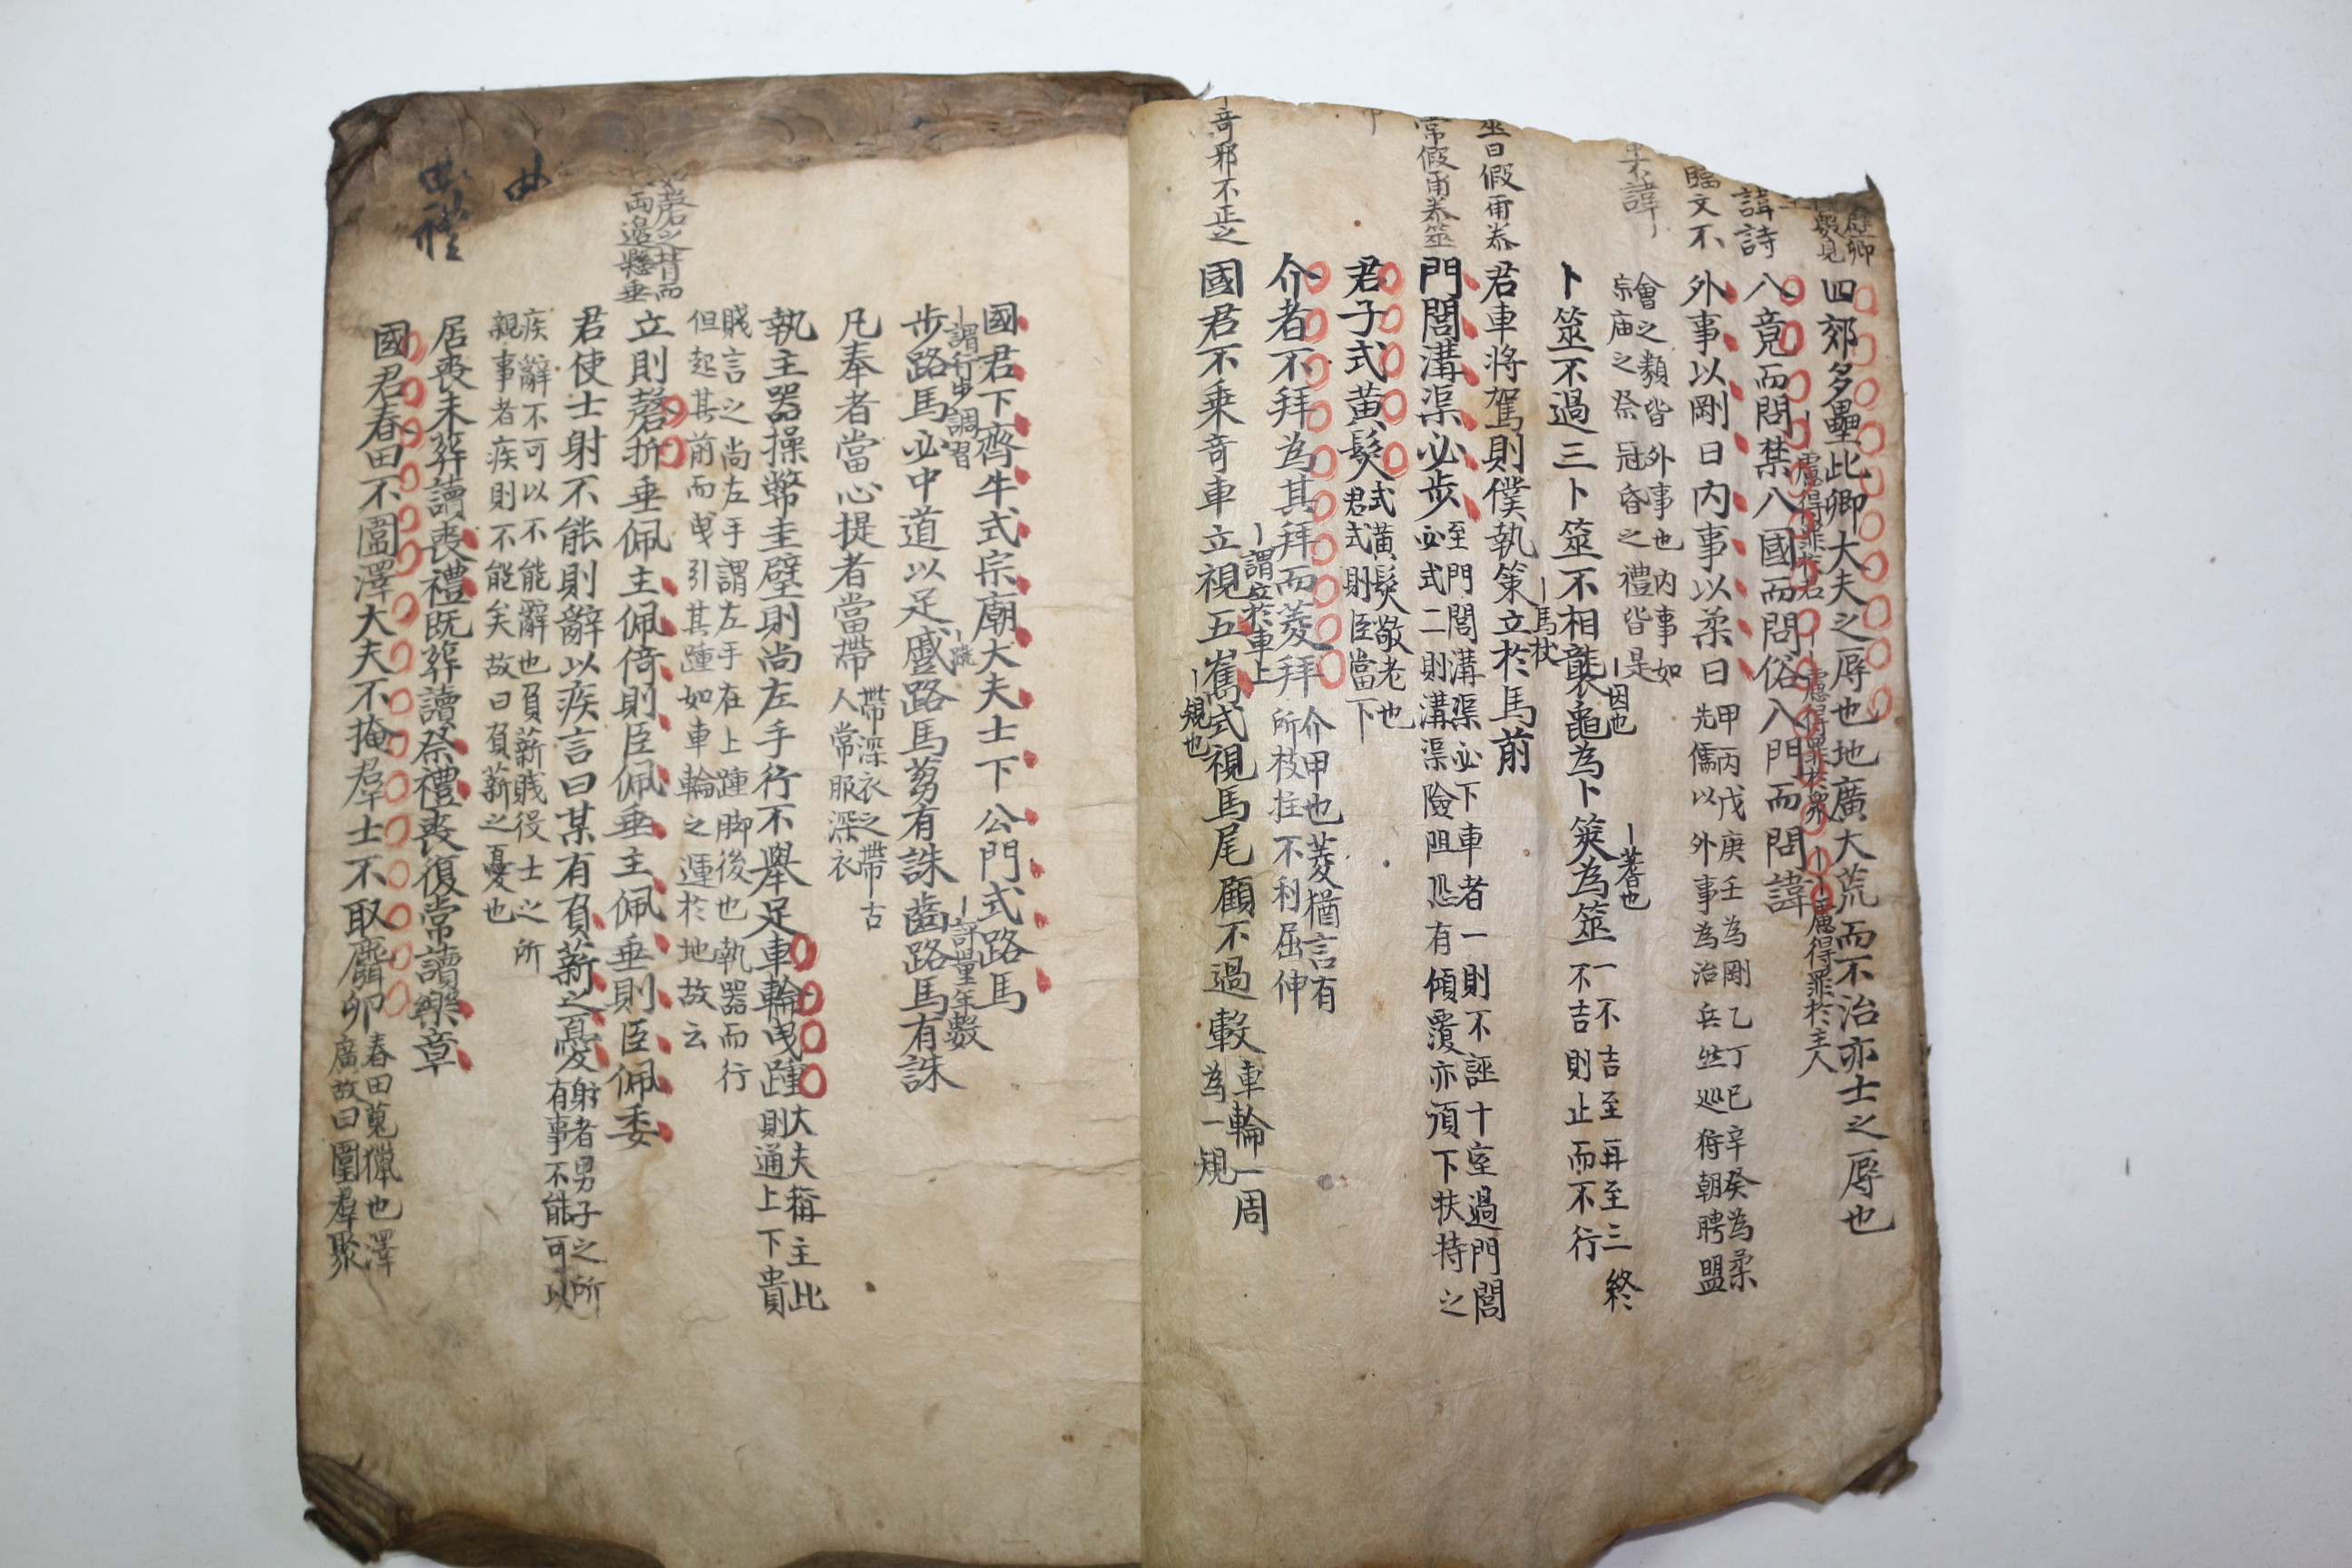 四郊多壘此卿大夫之辱也地廣大荒而不治亦士之辱也
慮得罪於君
慮得罪於衆
慮得罪於主人
諱詩
八竟而問禁八國而問俗八門而問諱
臨文不
外事以剛日内事以柔日
甲丙戊庚壬為剛乙丁巳辛癸為柔
先儒以外事為治兵然巡狩朝聘盟
會之類皆外事也内事如
宗庙之祭冠昏之禮皆是
不諱
卜筮不過三卜筮不相襲龜為卜筴為筮
一不吉至再至三終
不吉則止而不行
因也
蓍也
筮曰假甭泰
君車將駕則僕執策立於馬前
馬杖
常假甭泰筮
門閭溝渠必步
至門閭溝渠必下車者一則不誣十室過門閭
必式二則溝渠險阻恐有傾覆亦湏下扶持之
君子式黃髮
式黃髮敬老也
君式則臣當下
介者不拜為其拜而菱拜
介甲也菱猶言有
所枝拄不利屈伸
奇邪不正之
國君不乘奇車立視五嶲式視馬尾顧不過轂
謂立於車上
規也
車輪一周
為一規
國君下齊牛式宗廟大夫士下公門式路馬
謂行步調習
步路馬必中道以足蹙路馬芻有誅齒路馬有誅
評量年數
凡奉者當心提者當帶
帶深衣之帶古
人常服深衣
執主器操幣圭璧則尚左手行不舉足車輪曳踵
大夫稱主比
則通上下貴
賤言之尚左手謂左手在上踵脚後也執器而行
但起其前而曳引其踵如車輪之運於地故云
如磬之背而
兩邊懸垂
立則磬折垂佩主佩倚則臣佩垂主佩垂則臣佩委
君使士射不能則辭以疾言曰某有負薪之憂
射者男子之所
有事不能可以
疾辭不可以不能辭也負薪賤役士之所
親事者疾則不能矣故曰負薪之憂也
曲
居喪未葬讀喪禮既葬讀祭禮喪復常讀樂章
曲禮
國君春田不圍澤大夫不掩群士不取麛卵
春田蒐獵也澤
廣故曰圍羣聚